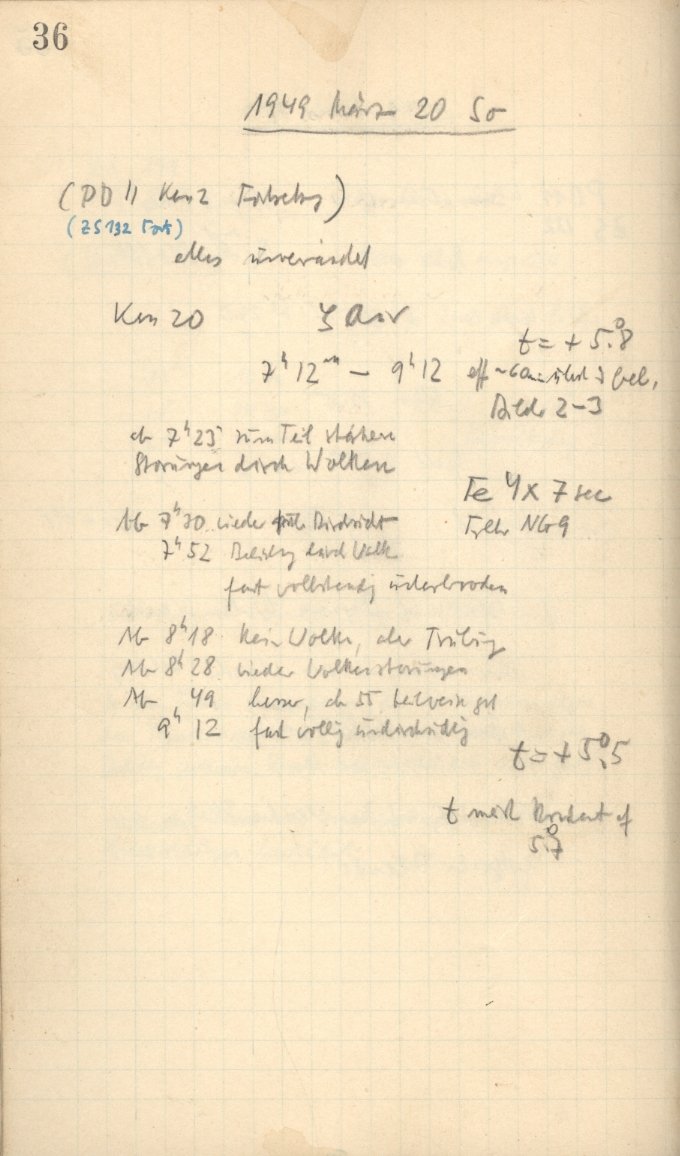 36
1949 März 20 So
(PD II Ken 2 Fortsetzg)
(ZS 132 Fort)
alles unverändert
Ken 20 ζ Aur
t = + 5°.8
7h 12m – 9h 12 eff ~ 60 min
Bilder 2–3
ab 7h 23 zum Teil stärkere
Störungen durch Wolken
Fe 4 x 7 sec
Ab 7h 30 wieder gute Durchsicht
Filter NG 9
7h 52 durch Wolke
fast vollständig unterbrochen
Ab 8h 18 kein Wolke, aber Trübung
Ab 8h 28 wieder Wolkenstörungen
Ab 49 besser, ab 55 teilweise gut
9h 12 fast völlig undurchsichtig
t = + 5°.5
t meist konstant auf
5°.7